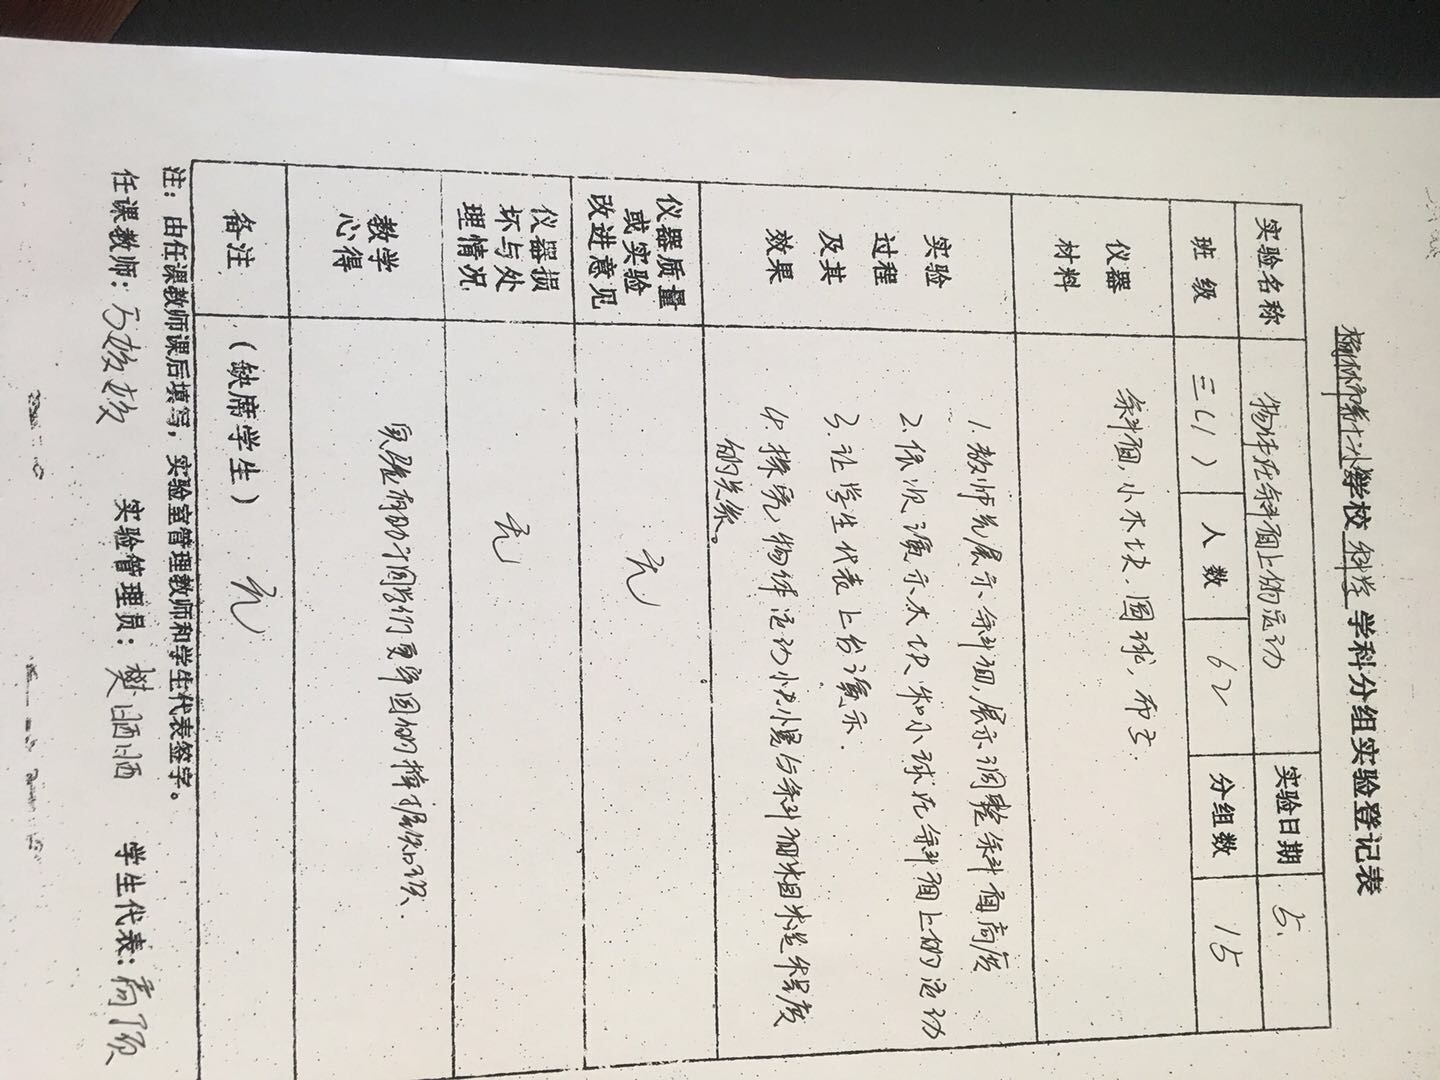 榆林市第十六小学校 科学 学科分组实验登记表
实验名称 物体在斜面上的运动 实验日期 5.
班级 三(1) 人数 62 分组数 15
仪器
材料
斜面,小木块、圆球,布等.
实验
过程
及其
效果
1.教师先展示斜面,展示调整斜面高度
2.依次演示木块和小球在斜面上的运动
3.让学生代表上台演示.
4.探究物体运动快慢与斜面粗糙程度
的关系。
仪器质量
或实验
改进意见
无
仪器损
坏与处
理情况
无
教学
心得
实验有助于同学们更牢固的掌握知识.
备注 (缺席学生) 无
注:由任课教师课后填写,实验室管理教师和学生代表签字。
任课教师: 实验管理员:樊晒晒 学生代表: